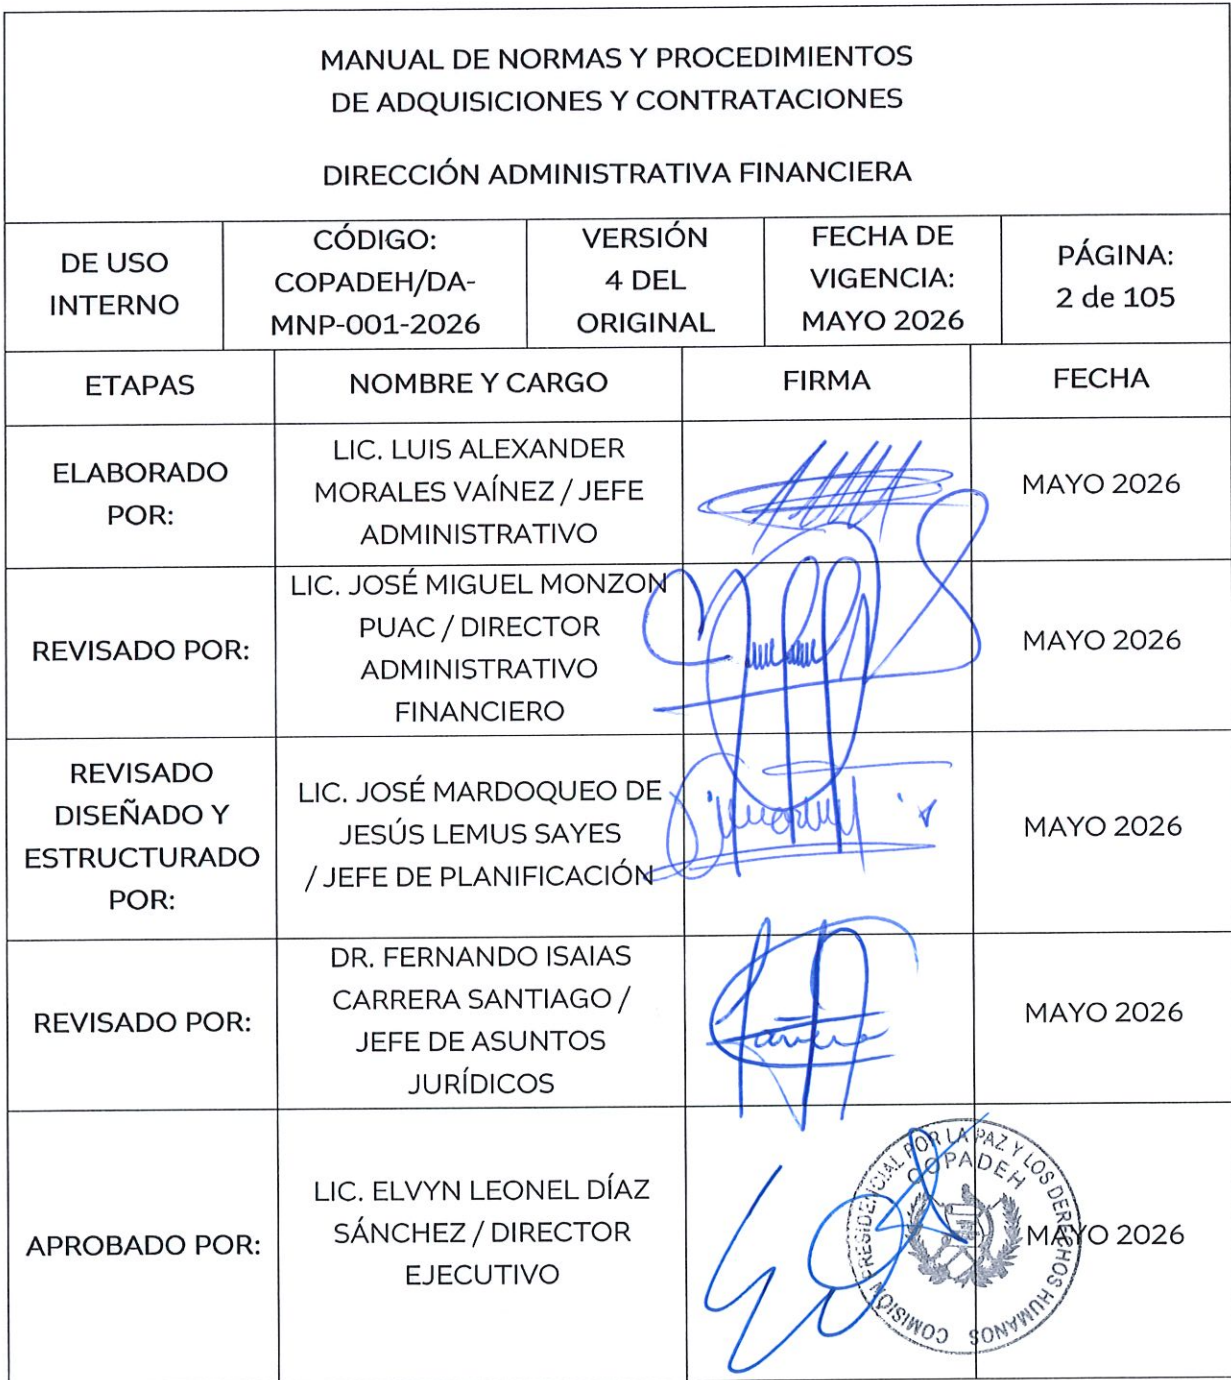 MANUAL DE NORMAS Y PROCEDIMIENTOS
DE ADQUISICIONES Y CONTRATACIONES
DIRECCIÓN ADMINISTRATIVA FINANCIERA
DE USO
INTERNO
CÓDIGO:
COPADEH/DA-
MNP-001-2026
VERSIÓN
4 DEL
ORIGINAL
FECHA DE
VIGENCIA:
MAYO 2026
PÁGINA:
2 de 105
ETAPAS
NOMBRE Y CARGO
FIRMA
FECHA
ELABORADO
POR:
LIC. LUIS ALEXANDER
MORALES VAÍNEZ / JEFE
ADMINISTRATIVO
MAYO 2026
REVISADO POR:
LIC. JOSÉ MIGUEL MONZON
PUAC / DIRECTOR
ADMINISTRATIVO
FINANCIERO
MAYO 2026
REVISADO
DISEÑADO Y
ESTRUCTURADO
POR:
LIC. JOSÉ MARDOQUEO DE
JESÚS LEMUS SAYES
/ JEFE DE PLANIFICACIÓN
MAYO 2026
REVISADO POR:
DR. FERNANDO ISAIAS
CARRERA SANTIAGO /
JEFE DE ASUNTOS
JURÍDICOS
MAYO 2026
APROBADO POR:
LIC. ELVYN LEONEL DÍAZ
SÁNCHEZ / DIRECTOR
EJECUTIVO
COMISIÓN PRESIDENCIAL POR LA PAZ Y LOS DERECHOS HUMANOS
COPADEH
MAYO 2026